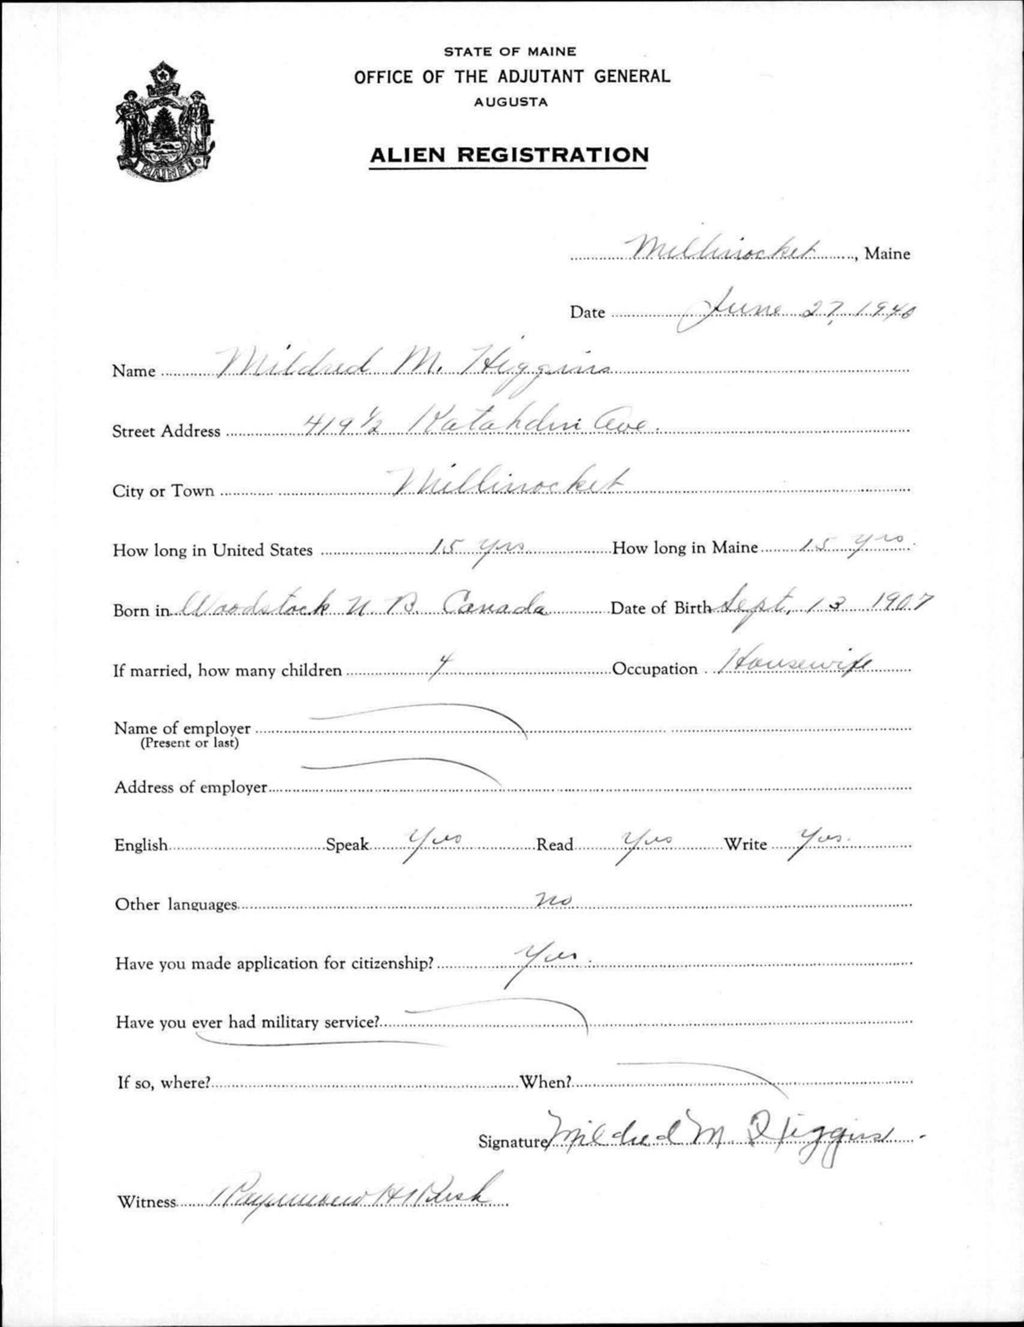 STATE OF MAINE
OFFICE OF THE ADJUTANT GENERAL
AUGUSTA
ALIEN REGISTRATION
MAINE
Millinocket, Maine
Date June 27, 1940
Name Mildred M. Higgins
Street Address 419 1/2 Katahdin Ave.
City or Town Millinocket
How long in United States 15 yrs How long in Maine 15 yrs.
Born in Woodstock N. B. Canada Date of Birth Sept. 13 1907
If married, how many children 4 Occupation Housewife
Name of employer
(Present or last)
Address of employer
English Speak Yes Read Yes Write Yes.
Other languages no
Have you made application for citizenship? Yes.
Have you ever had military service?
If so, where? When?
Signature Mildred M Higgins.
Witness H